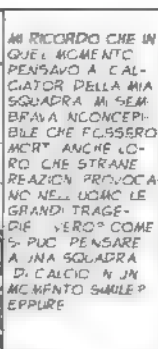 MI RICORDO CHE IN
QUEL MOMENTO
PENSAVO A CAL-
CIATORI DELLA MIA
SQUADRA. MI SEM-
BRAVA INCONCEPI-
BILE CHE FOSSERO
MORTI ANCHE LO-
RO. CHE STRANE
REAZIONI PROVOCA-
NO NELL'UOMO LE
GRANDI TRAGE-
DIE, VERO? COME
SI PUÒ PENSARE
A UNA SQUADRA
DI CALCIO IN UN
MOMENTO SIMILE?
EPPURE